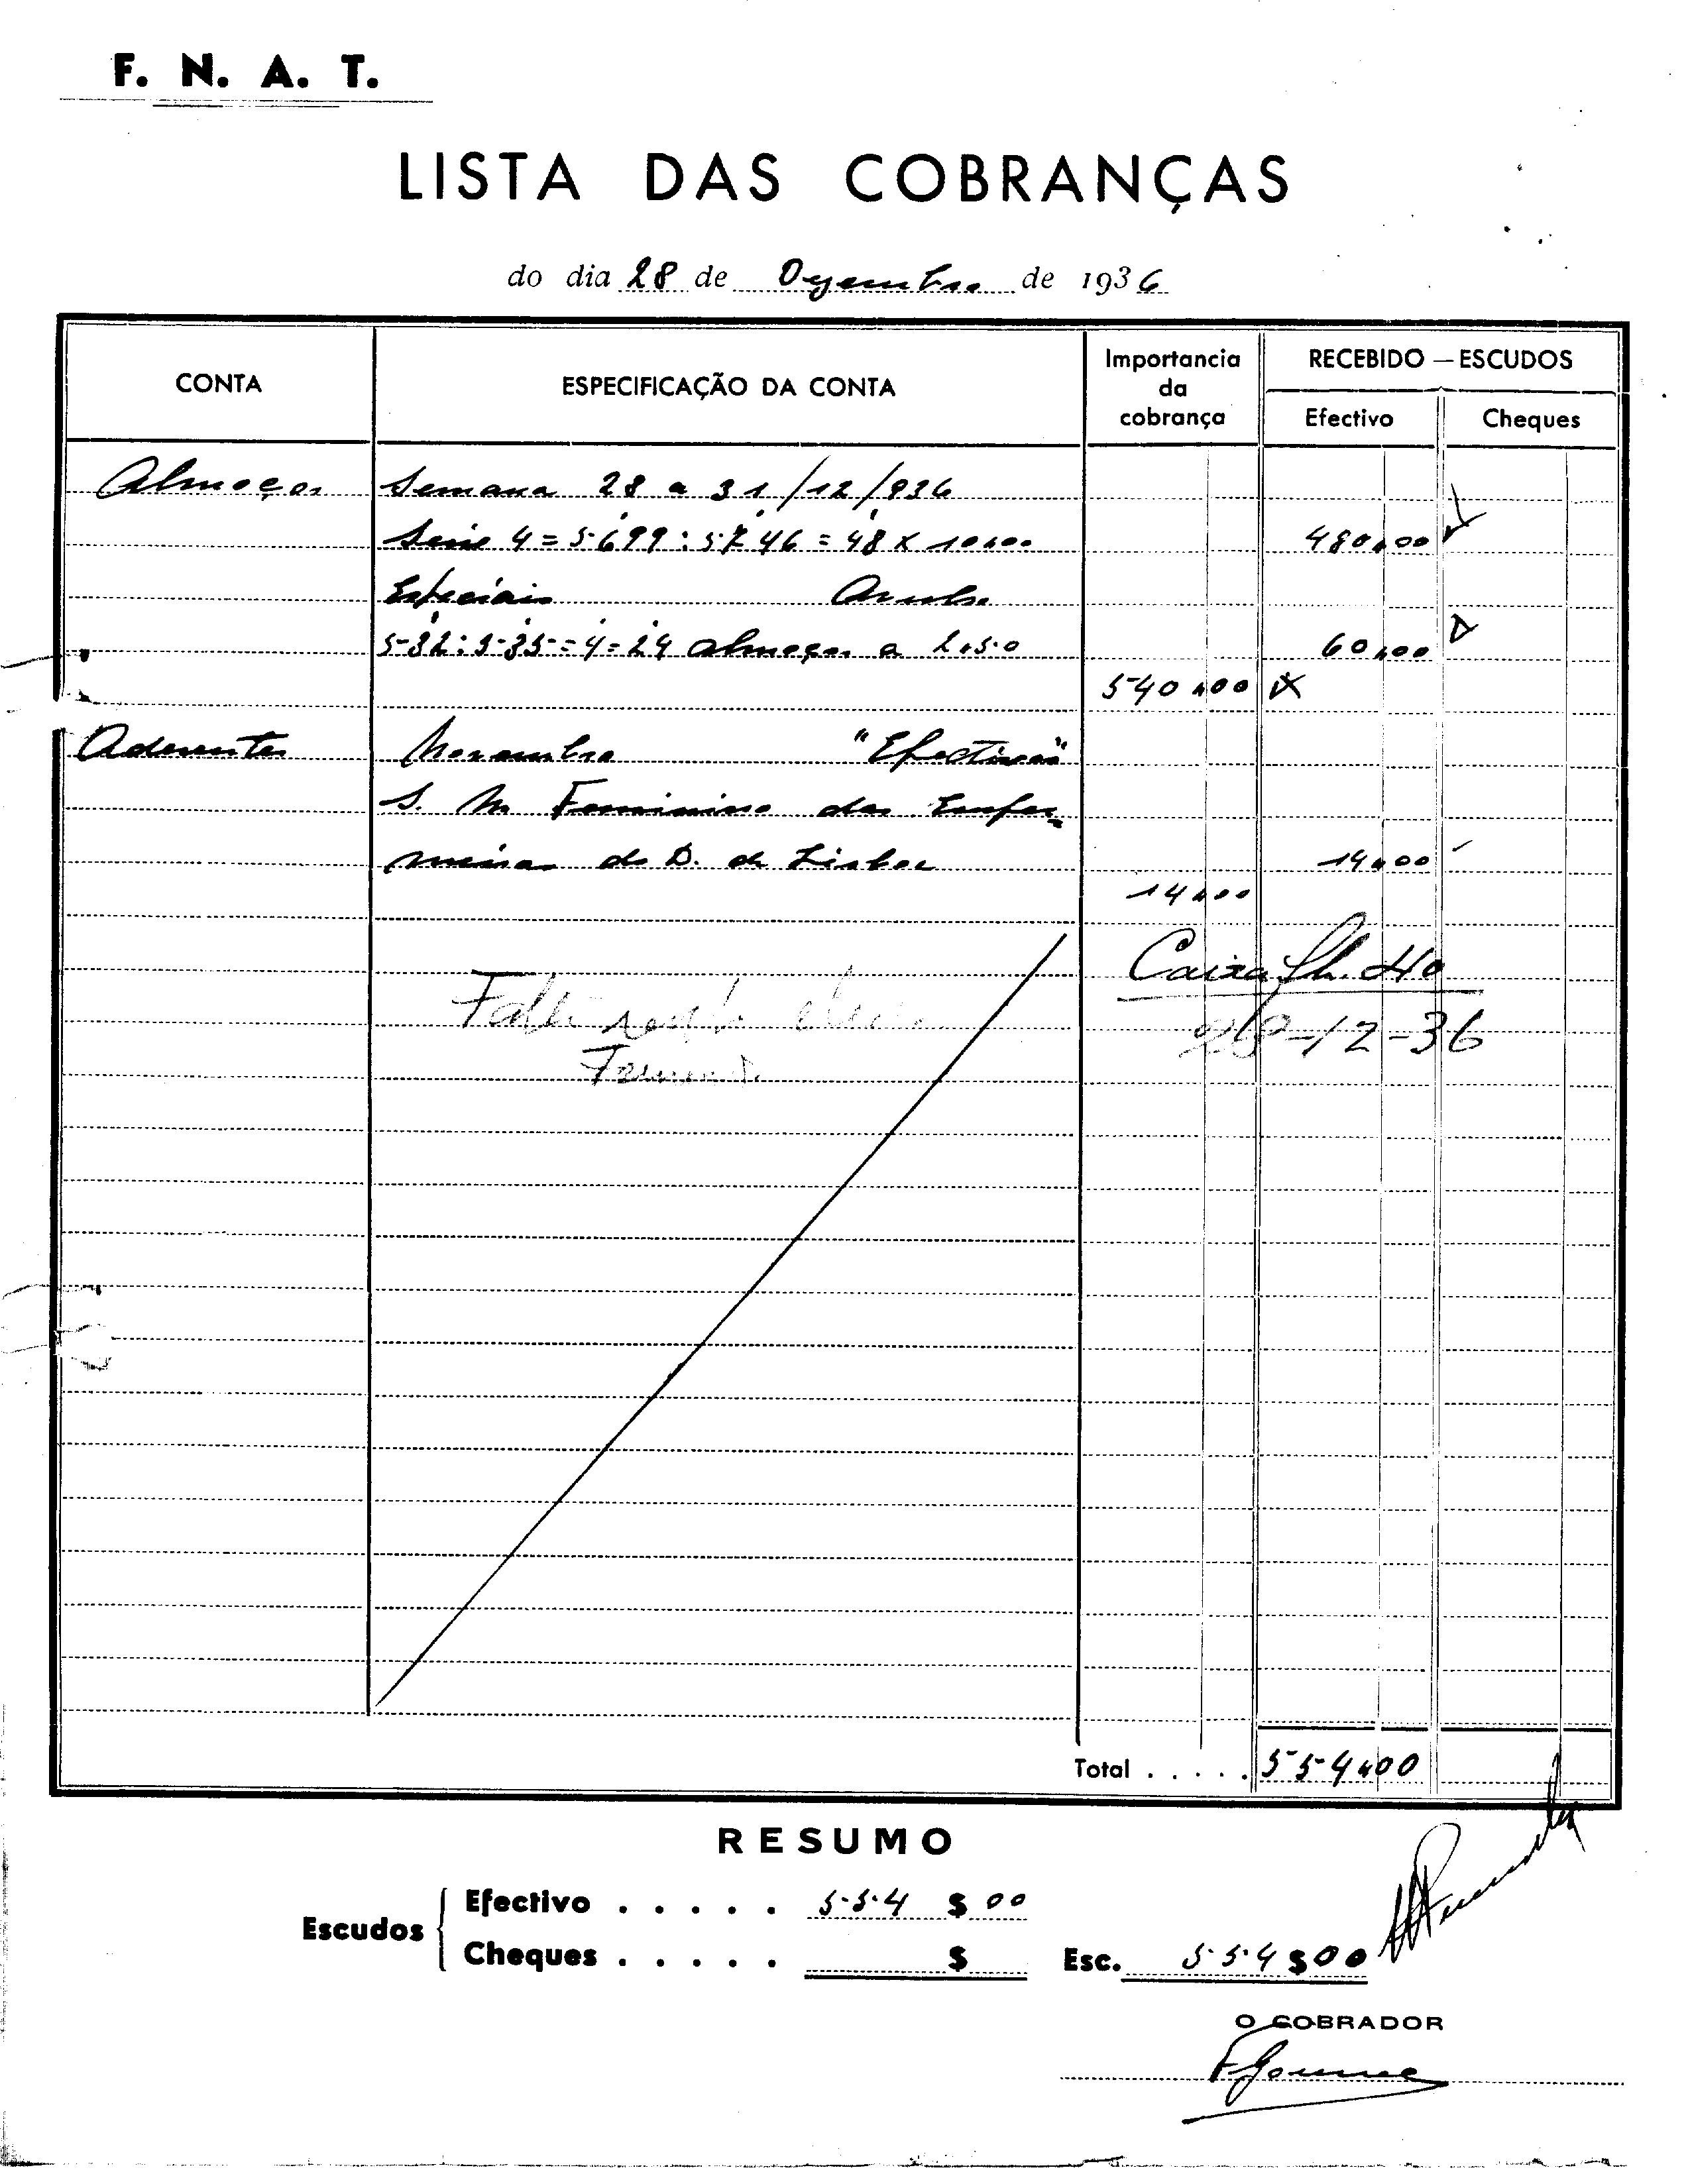 F. N. A. T.
LISTA DAS COBRANÇAS
do dia 28 de Dezembro de 1936
CONTA
ESPECIFICAÇÃO DA CONTA
Importancia da cobrança
RECEBIDO — ESCUDOS
Efectivo
Cheques
Almoços Semana 28 a 31/12/936
Serie 4 = 5.699 : 5.746 = 48 x 10$00 480$00
Especiais Avulso
532 : 535 = 4 = 24 almoços a 2$50 60$00
540$00
Aderentes Novembro "Efectivos"
S. N. Feminino das Enfer-
meiras do D. de Lisboa 14$00
14$00
Caixa fl. 40
28-12-36
Falta
Total . . . . . 554$00
RESUMO
Escudos
Efectivo . . . . . 554 $ 00
Cheques . . . . . $
Esc. 554$00
O COBRADOR